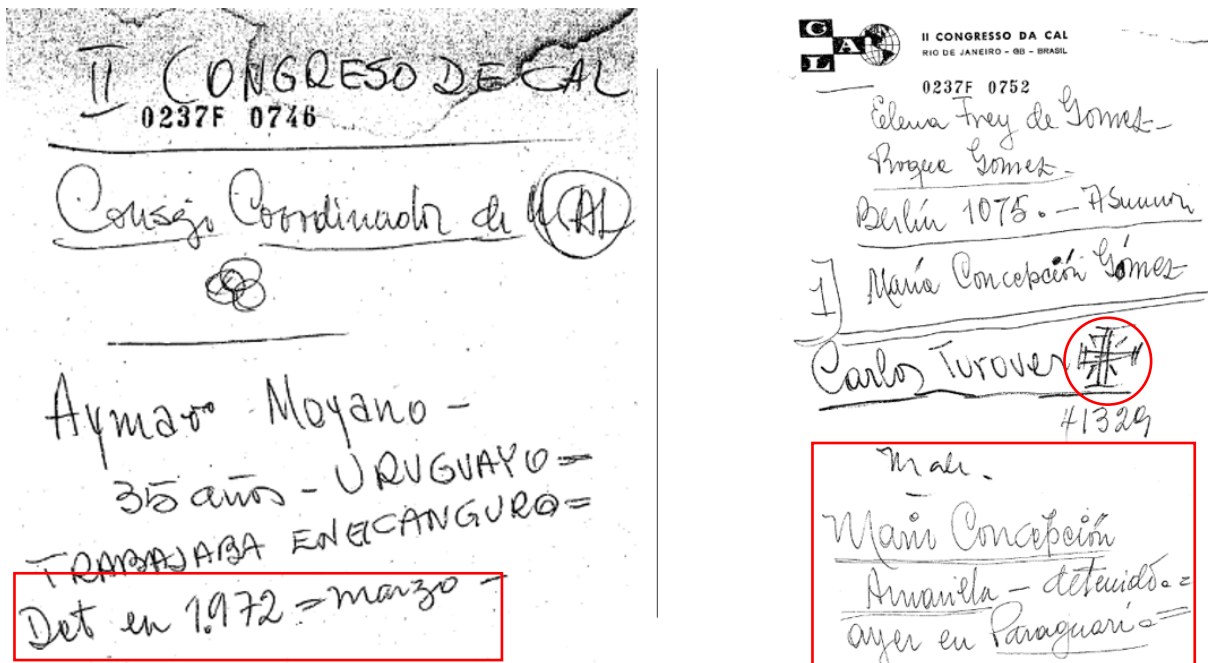 II CONGRESO DE CAL
0237F 0746
Consejo Coordinador de CAL
Aymar Moyano -
35 años - URUGUAYO =
TRABAJABA EN CANGURO =
Det en 1.972 = marzo -
CAL
II CONGRESSO DA CAL
RIO DE JANEIRO - GB - BRASIL
0237F 0752
Elena Frey de Gomez -
Roque Gomez -
Berlín 1075. - Asunción
1] María Concepción Gómez
Carlos Turover
41329
Concepción
- detenido. =
ayer en Paraguarí =